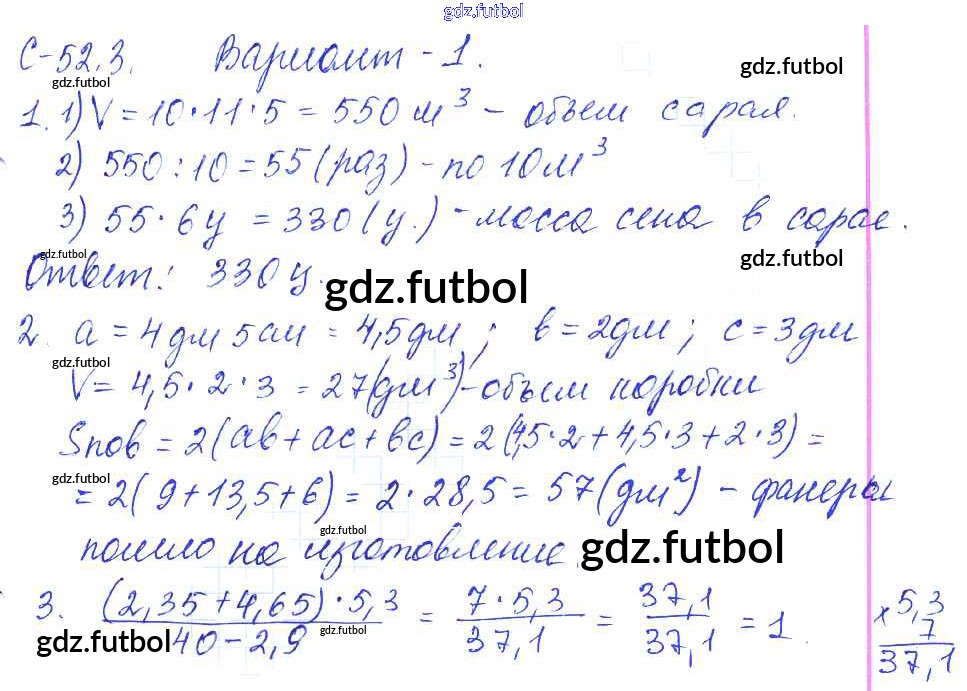 gdz.futbol
С-52.3. Вариант - 1.
gdz.futbol
gdz.futbol
1. 1) V = 10·11·5 = 550 м³ - объем сарая.
2) 550 : 10 = 55 (раз) - по 10м³
3) 55·6ц = 330 (ц.) - масса сена в сарае.
gdz.futbol
gdz.futbol
Ответ: 330ц.
gdz.futbol
2. a = 4дм 5см = 4,5дм; b = 2дм; c = 3дм
gdz.futbol
V = 4,5·2·3 = 27(дм³) - объем коробки
Sпов = 2(ab + ac + bc) = 2(4,5·2 + 4,5·3 + 2·3) =
gdz.futbol
= 2(9 + 13,5 + 6) = 2·28,5 = 57(дм²) - фанеры
gdz.futbol
пошло на изготовление.
gdz.futbol
3. (2,35 + 4,65)·5,3 / 40 - 2,9 = 7·5,3 / 37,1 = 37,1 / 37,1 = 1.
gdz.futbol
gdz.futbol
× 5,3
7
37,1